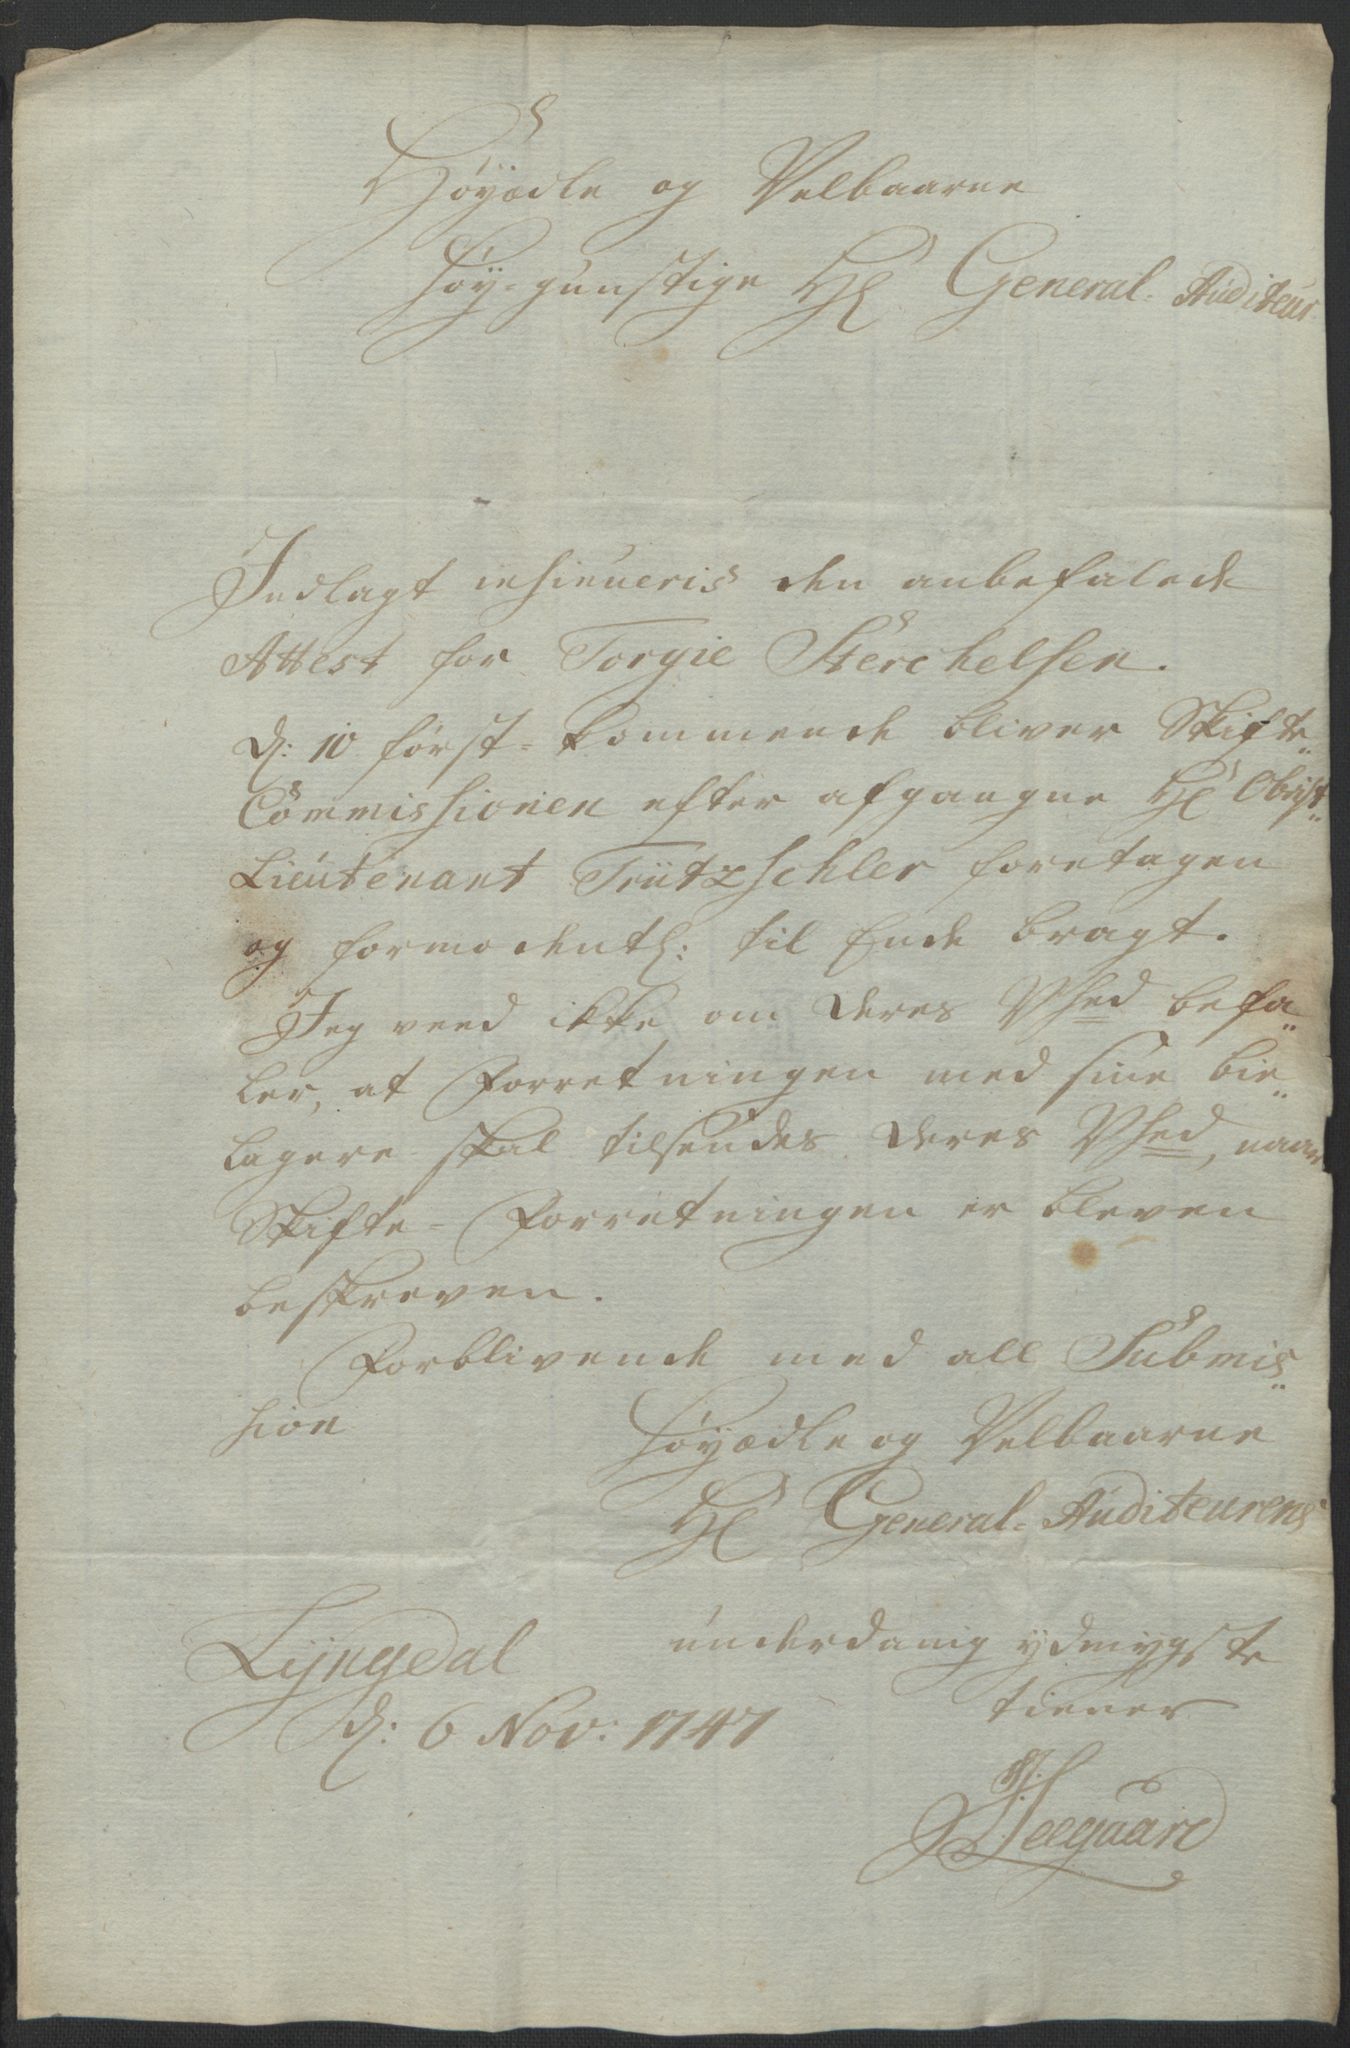 Høyædle og Velbaarne
Høy-gunstige Hr General-Auditeur
Indlagt insinueris den anbefalede
Attest for Torgie Sterchelsen.
d: 10 først-kommende bliver Skifte-
Commissionen efter afgangne Hr Obrist-
Lieutenant Trützschler foretagen
og formodentl: til Ende bragt.
Jeg veed ikke om Deres Vhed befa-
ler, at Forretningen med sine bie-
lagere skal tilsendes Deres Vhed, naar
Skifte-Forretningen er bleven
beskreven.
Forblivende med all Submis-
sion
Høyædle og Velbaarne
Hr General-Auditeurens
Lyngdal
underdanig ydmygste
d: 6 Nov: 1747
tiener
Seeguard